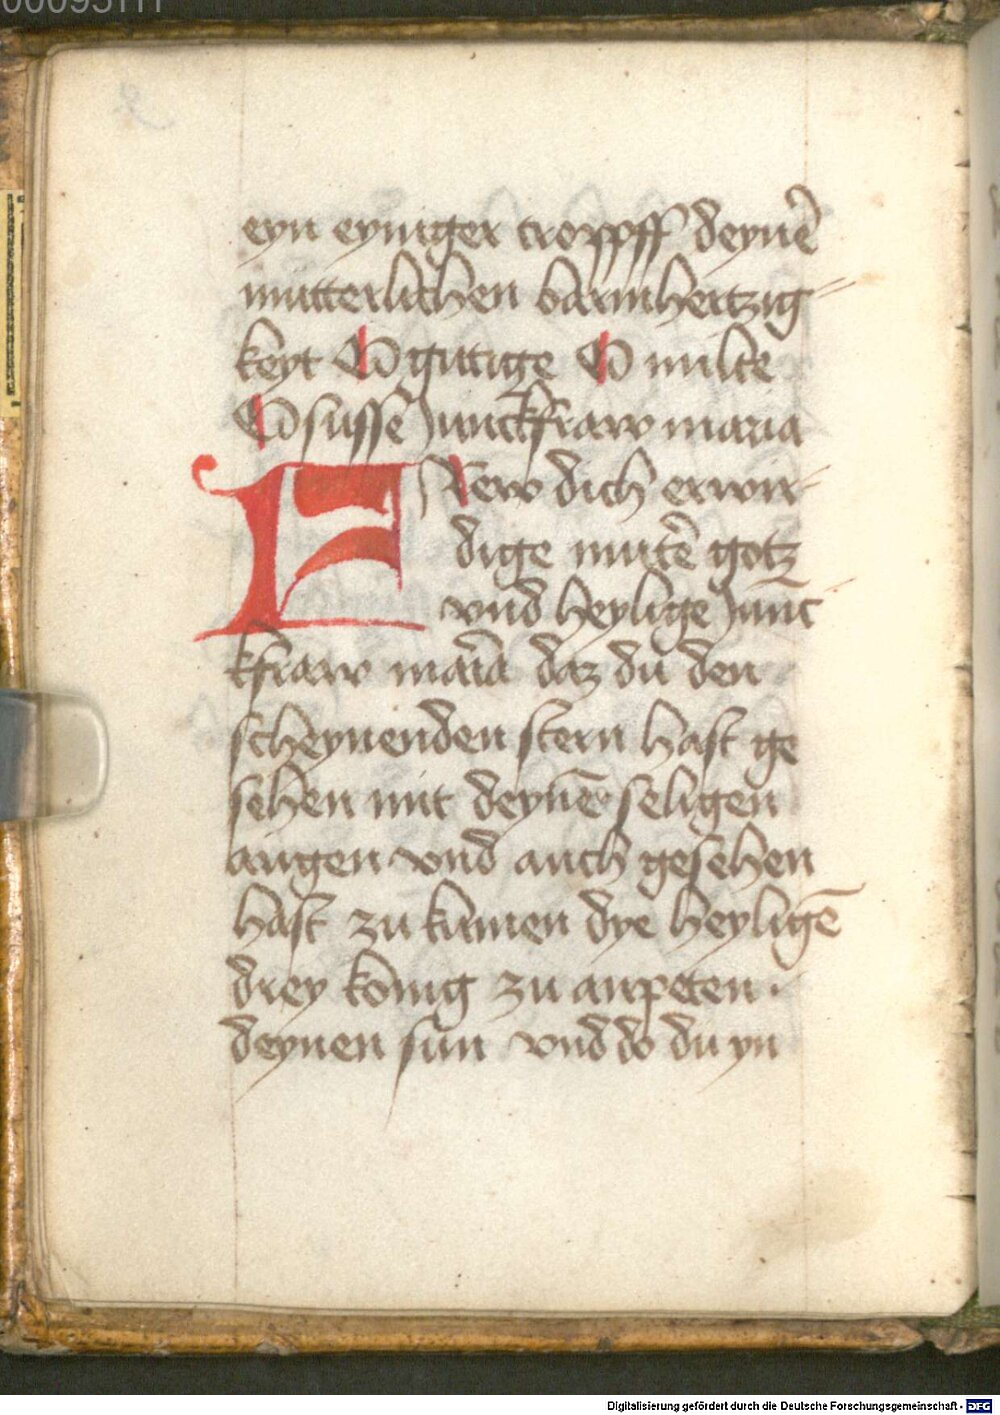 eyn eyniger tropff deyne͛
mutterlichen barmhertzig-
keyt O guttige O milte
O susse Junckfraw maria
FRew dich erwir-
dige mute͛ gotz
vnd heylige Junc
kfraw maria daz du den
scheynenden stern hast ge
sehen mit deynē seligen
augen vnd auch gesehen
hast zu kumen dye heyligē
drey konig zu anpeten ·
deynen sun vnd do du yn
Digitalisierung gefördert durch die Deutsche Forschungsgemeinschaft - DFG